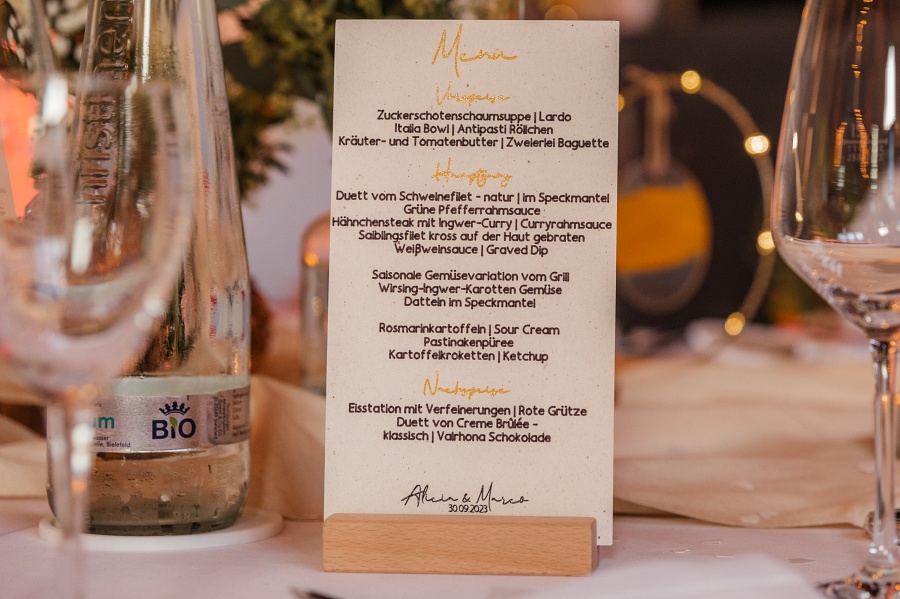 Menü
Vorspeise
Zuckerschotenschaumsuppe | Lardo
Italia Bowl | Antipasti Röllchen
Kräuter- und Tomatenbutter | Zweierlei Baguette
Hauptgang
Duett vom Schweinefilet - natur | im Speckmantel
Grüne Pfefferrahmsauce
Hähnchensteak mit Ingwer-Curry | Curryrahmsauce
Saiblingsfilet kross auf der Haut gebraten
Weißweinsauce | Graved Dip
Saisonale Gemüsevariation vom Grill
Wirsing-Ingwer-Karotten Gemüse
Datteln im Speckmantel
Rosmarinkartoffeln | Sour Cream
Pastinakenpüree
Kartoffelkroketten | Ketchup
Nachspeise
Eisstation mit Verfeinerungen | Rote Grütze
Duett von Creme Brûlée -
klassisch | Valrhona Schokolade
Alicia & Marco
30.09.2023
BIO
Bielefeld